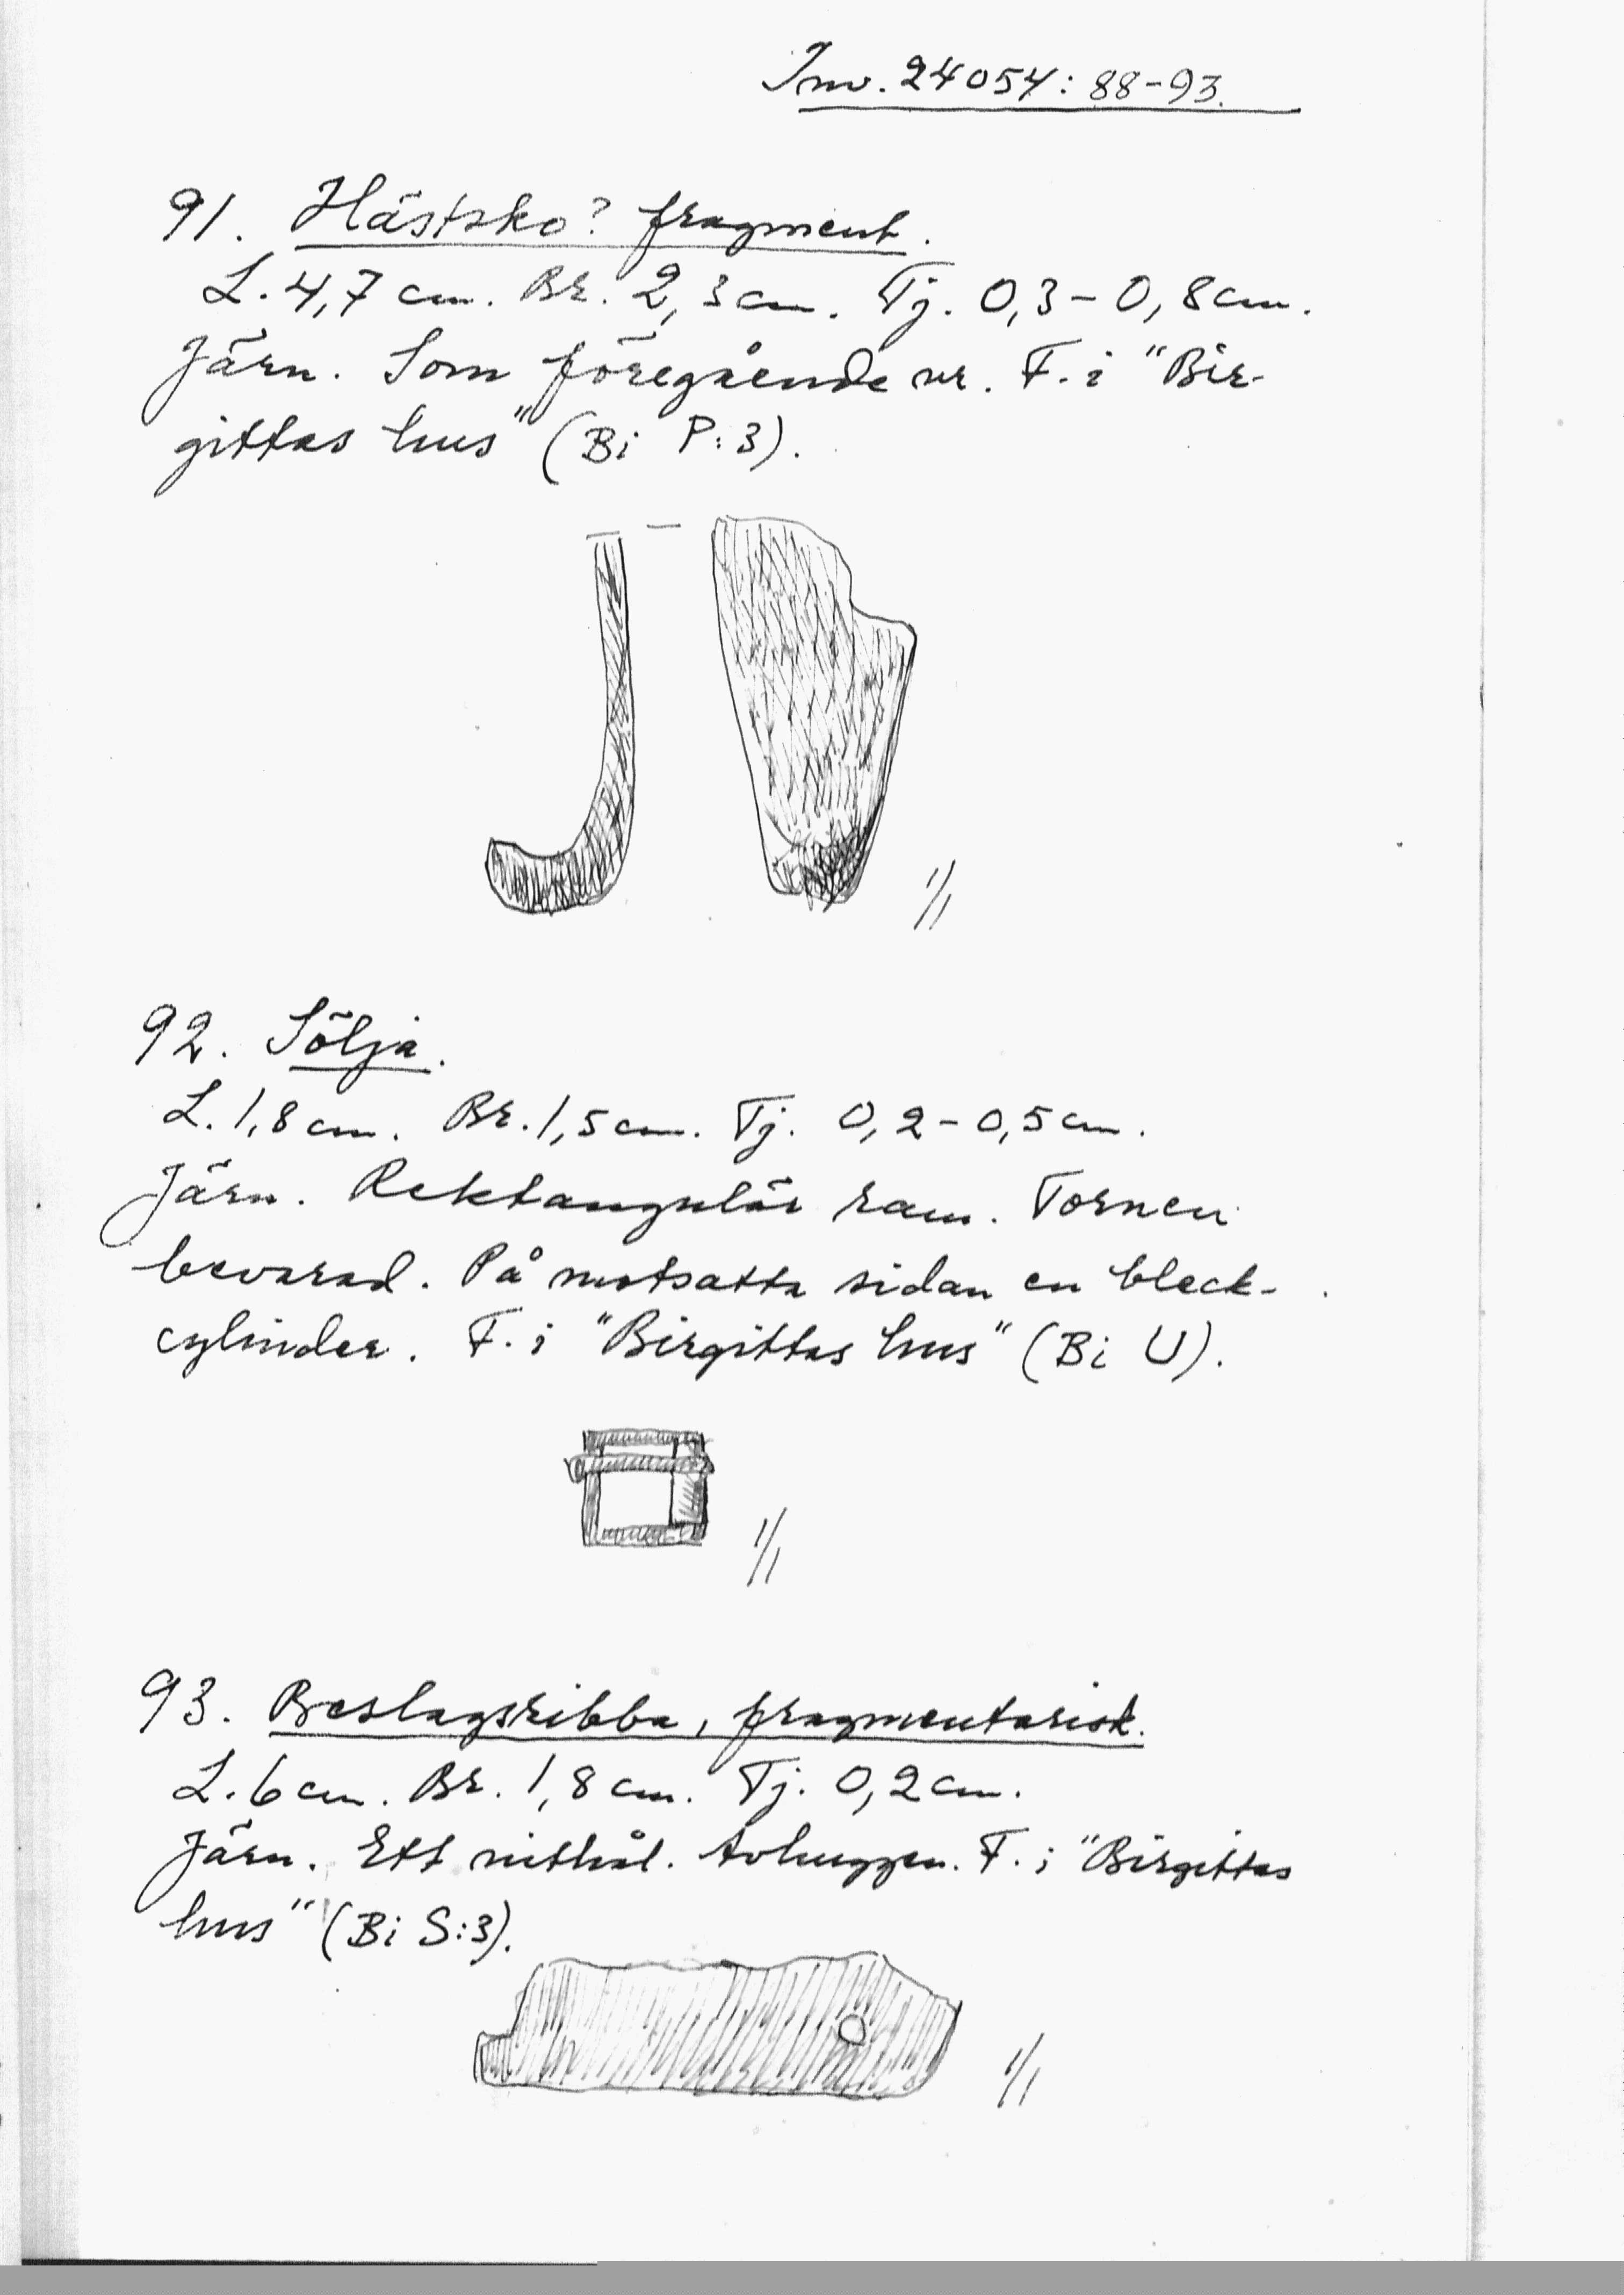 Inv. 24054: 88-93.
91. Hästsko? fragment.
L. 4,7 cm. Br. 2,3 cm. Tj. 0,3-0,8 cm.
Järn. Som föregående nr. F. i "Bir-
gittas hus" (Bi P:3).
1/1
92. Sölja.
L. 1,8 cm. Br. 1,5 cm. Tj. 0,2-0,5 cm.
Järn. Rektangulär ram. Tornen
bevarad. På motsatta sidan en bleck-
cylinder. F. i "Birgittas hus" (Bi U).
1/1
93. Beslagsribba, fragmentarisk.
L. 6 cm. Br. 1,8 cm. Tj. 0,2 cm.
Järn. Ett nithål. Avhuggen. F. i "Birgittas
hus" (Bi S:3).
1/1